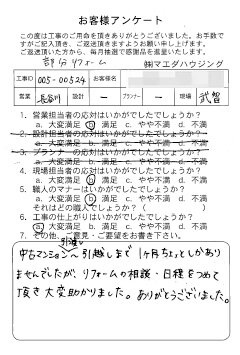 お客様アンケート
この度は工事のご用命を頂きありがとうございました。お手数で
すがご記入頂き、ご返送頂きますようお願い申し上げます。
ご返送頂いた方から、毎月抽選で感謝品を進呈いたします。
部分リフォーム
㈱マエダハウジング
工事ID 005-00524 お客様名
営業 長谷川 設計 ー プランナー ー 現場 武智
1. 営業担当者の対応はいかがでしたでしょうか?
a. 大変満足 b 満足 c. やや不満 d. 不満
2. 設計担当者の対応はいかがでしたでしょうか?
a. 大変満足 b. 満足 c. やや不満 d. 不満
3. プランナーの対応はいかがでしたでしょうか?
a. 大変満足 b. 満足 c. やや不満 d. 不満
4. 現場担当者の対応はいかがでしたでしょうか?
a. 大変満足 b 満足 c. やや不満 d. 不満
5. 職人のマナーはいかがでしたでしょうか?
a. 大変満足 b 満足 c. やや不満 d. 不満
それはどの職人でしょうか?( )
6. 工事の仕上がりはいかがでしたでしょうか?
a 大変満足 b. 満足 c. やや不満 d. 不満
7. その他、ご意見・ご要望をお書き下さい。
引渡し
中古マンション〜引越しまで1ヶ月ちょっとしかあり
ませんでしたが、リフォームの相談・日程をつめて
頂き大変助かりました。ありがとうございました。